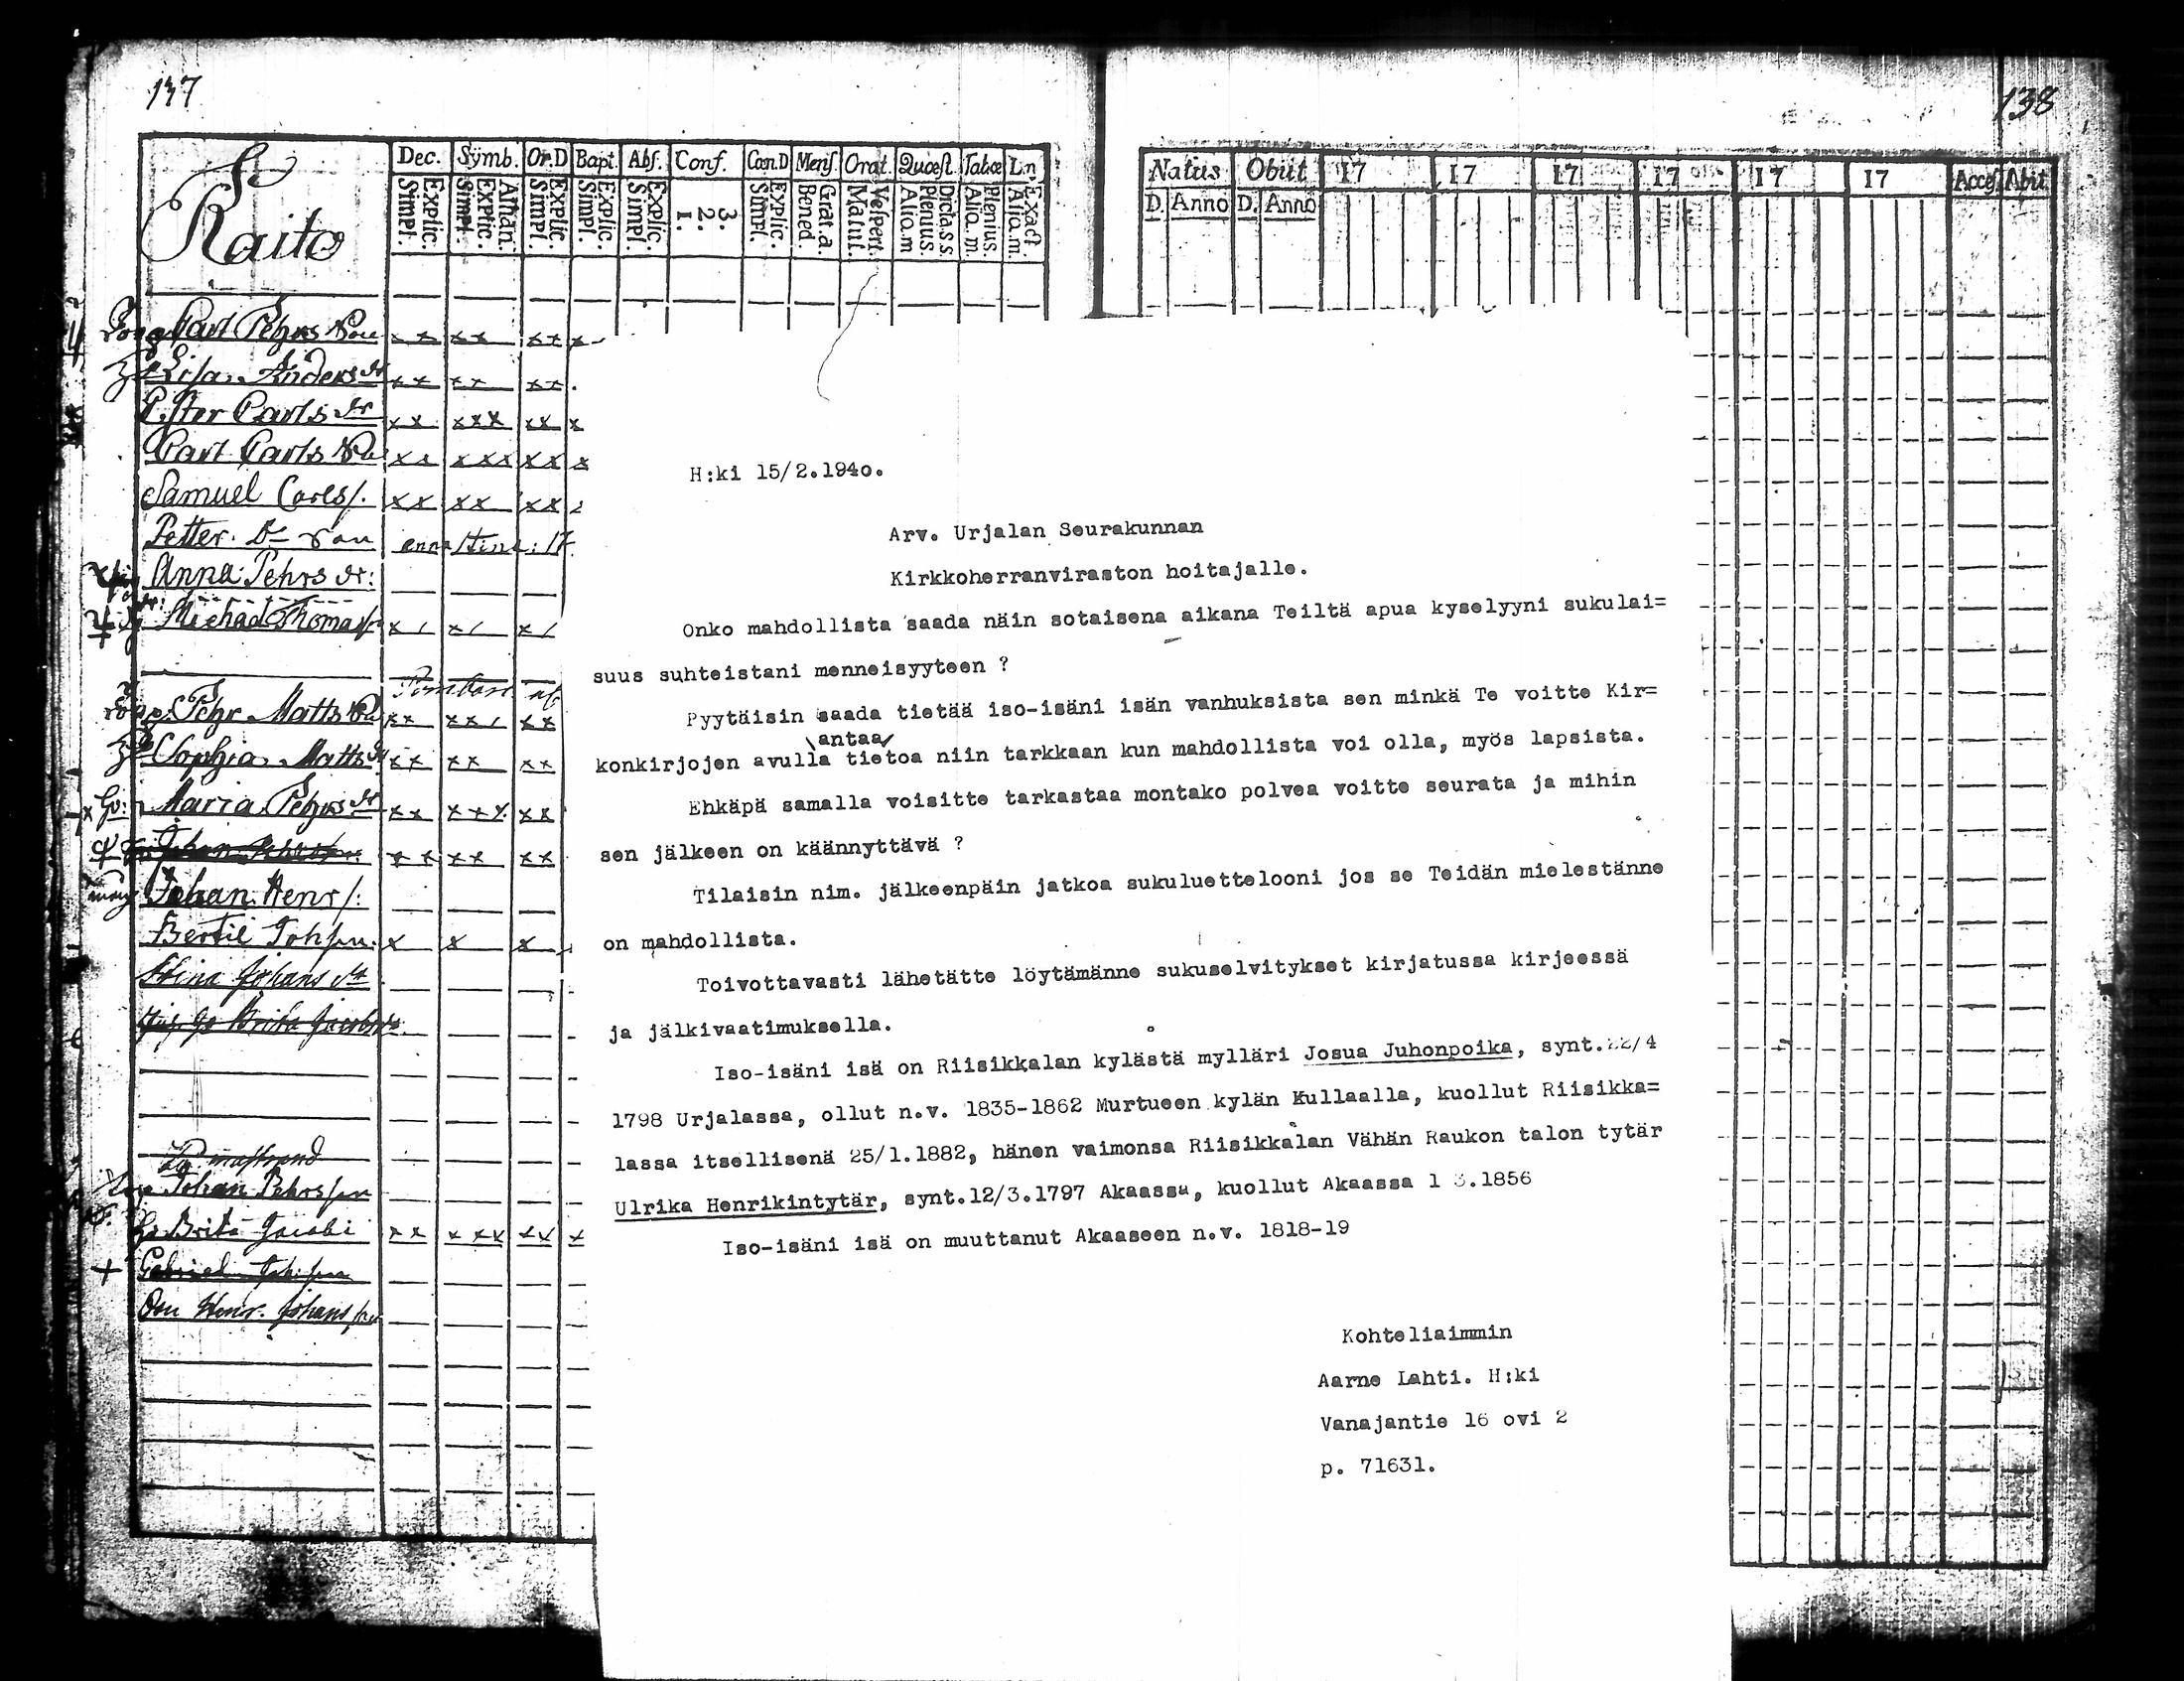 137
138
Raito
Dec. Symb. Or.D Bapt. Abs. Conf. Cœn.D Mens. Orat. Quœst. Tabœ L.n.
Explic. Simpl.
Athan. Explic. Simpl.
Explic. Simpl.
Explic. Simpl.
Explic. Simpl.
3. 2. 1.
Explic. Simpl.
Grat.a. Bened.
Vespert. Matut.
Dicta.s s. Plenius. Alio.m
Plenius. Alio.m.
Exact Alio.m.
Natus Obiit 17 17 17 17 17 17 Acces. Abit
D. Anno D. Anno
Carl Pehrs Son
Lisa Anders dr
Ester Carls dr
Carl Carls So
Samuel Carls/.
Petter Do son
Anna Pehrs dr:
Michael Thomas/
Pehr Matts So
Sophia Matts dr
Maria Pehrs dr
Johan Henr/:
Bertil Joh/on.
Stina Johans dr
Johan Pehrs/on
Brita Jacobi
Gabriel Joh/on
Henr. Johans/on
H:ki 15/2.194o.
Arv. Urjalan Seurakunnan
Kirkkoherranviraston hoitajalle.
Onko mahdollista saada näin sotaisena aikana Teiltä apua kyselyyni sukulai=
suus suhteistani menneisyyteen ?
Pyytäisin saada tietää iso-isäni isän vanhuksista sen minkä Te voitte Kir=
antaa
konkirjojen avulla tietoa niin tarkkaan kun mahdollista voi olla, myös lapsista.
Ehkäpä samalla voisitte tarkastaa montako polvea voitte seurata ja mihin
sen jälkeen on käännyttävä ?
Tilaisin nim. jälkeenpäin jatkoa sukuluettelooni jos se Teidän mielestänne
on mahdollista.
Toivottavasti lähetätte löytämänne sukuselvitykset kirjatussa kirjeessä
ja jälkivaatimuksella.
Iso-isäni isä on Riisikkalan kylästä mylläri Josua Juhonpoika, synt.22/4
1798 Urjalassa, ollut n.v. 1835-1862 Murtueen kylän Kullaalla, kuollut Riisikka=
lassa itsellisenä 25/1.1882, hänen vaimonsa Riisikkalan Vähän Raukon talon tytär
Ulrika Henrikintytär, synt.12/3.1797 Akaassa, kuollut Akaassa 1 3.1856
Iso-isäni isä on muuttanut Akaaseen n.v. 1818-19
Kohteliaimmin
Aarne Lahti. H:ki
Vanajantie 16 ovi 2
p. 71631.